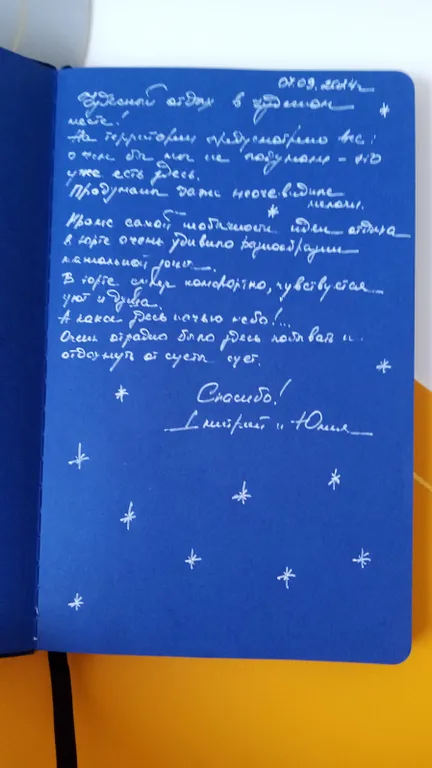 07.09.2024г
Чудесный отдых в чудесном
месте!
На территории предусмотрено все:
о чем бы мы не подумали - это
уже есть здесь.
Продуманы даже неочевидные
мелочи.
Кроме самой необычности идеи отдыха
в юрте очень удивило разнообразие
В юрте супер комфортно, чувствуется
уют и душа.
А какое здесь ночью небо!...
Очень отрадно было здесь побывать и
отдохнуть от суеты сует.
Спасибо!
Дмитрий и Юлия